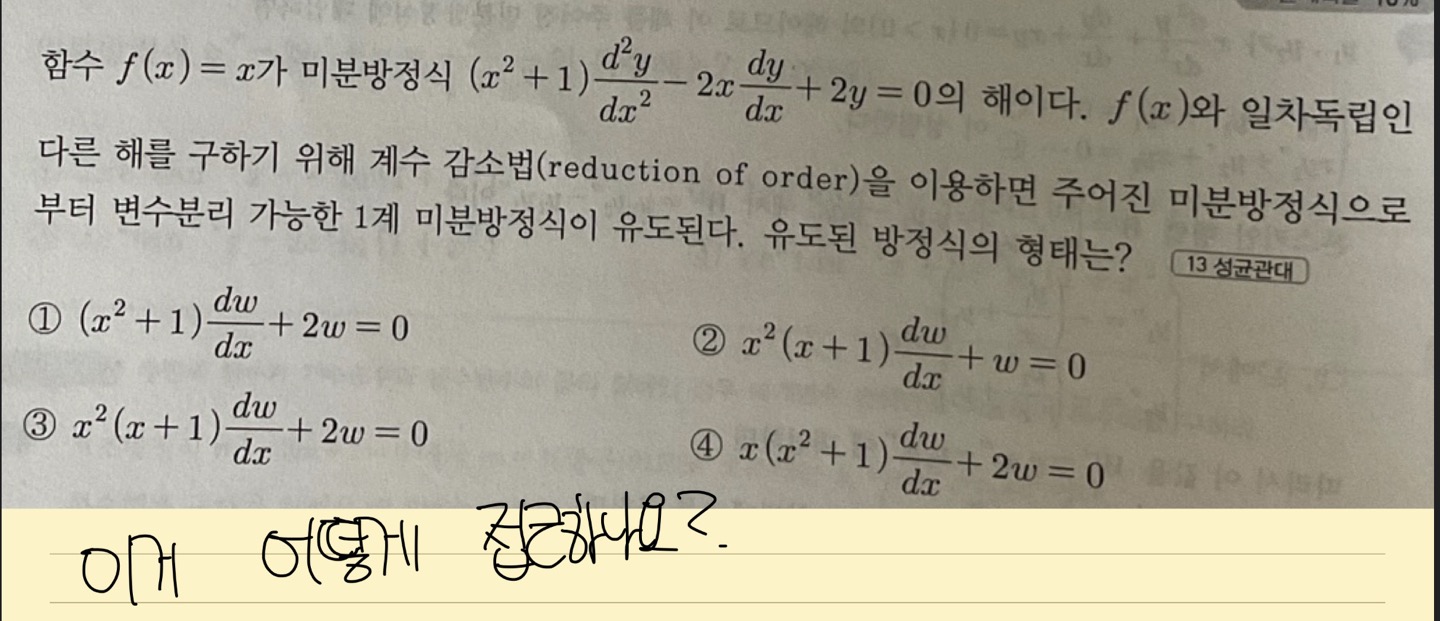 함수 f(x) = x가 미분방정식 (x² + 1) d²y/dx² − 2x dy/dx + 2y = 0의 해이다. f(x)와 일차독립인
다른 해를 구하기 위해 계수 감소법(reduction of order)을 이용하면 주어진 미분방정식으로
부터 변수분리 가능한 1계 미분방정식이 유도된다. 유도된 방정식의 형태는? 13 성균관대
① (x² + 1) dw/dx + 2w = 0
② x²(x + 1) dw/dx + w = 0
③ x²(x + 1) dw/dx + 2w = 0
④ x(x² + 1) dw/dx + 2w = 0
이거 어떻게 접근하나요?